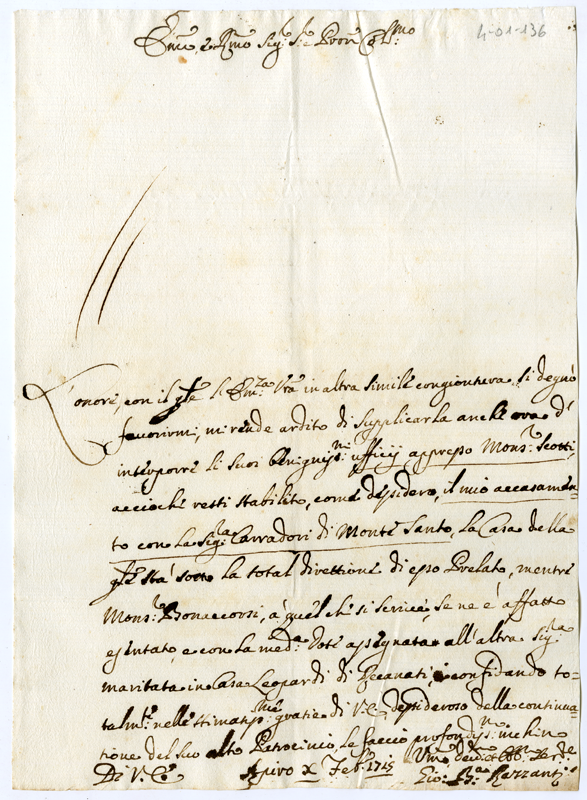 4-01-136
Em̃o, e Rm̃o Sig.r S.r Pron̄ Col.mo
L'onore, con il q̃le l'Em.za Vr̃a in altra simile congiontura, si degnò
favorirmi, mi rende ardito di supplicarla anche ora d'
interporre li suoi benigniss.mi ufficij appresso Mons.r Scotti,
acciochè resti stabilito, come desidero, il mio accasamen=
to con la Sig.ra Carradori di Monte Santo, la Casa della
q̃le stà sotto la total direttione di esso Prelato, mentre
Mons.r Bonaccorsi, à quel che si scrive, se ne è affatto
esentato, e con la med.a Dote assegnata all'altra Sig.ra
maritata in Casa Leopardi di Recanati; e confidando to=
talm.te nelle stimatiss.me gratie di V.E. desideroso della continua=
tione del suo alto Patrocinio, le faccio profondiss.mo inchin
Di V.E. Apiro X Feb.o 1715
Gio: B.a Razzanti